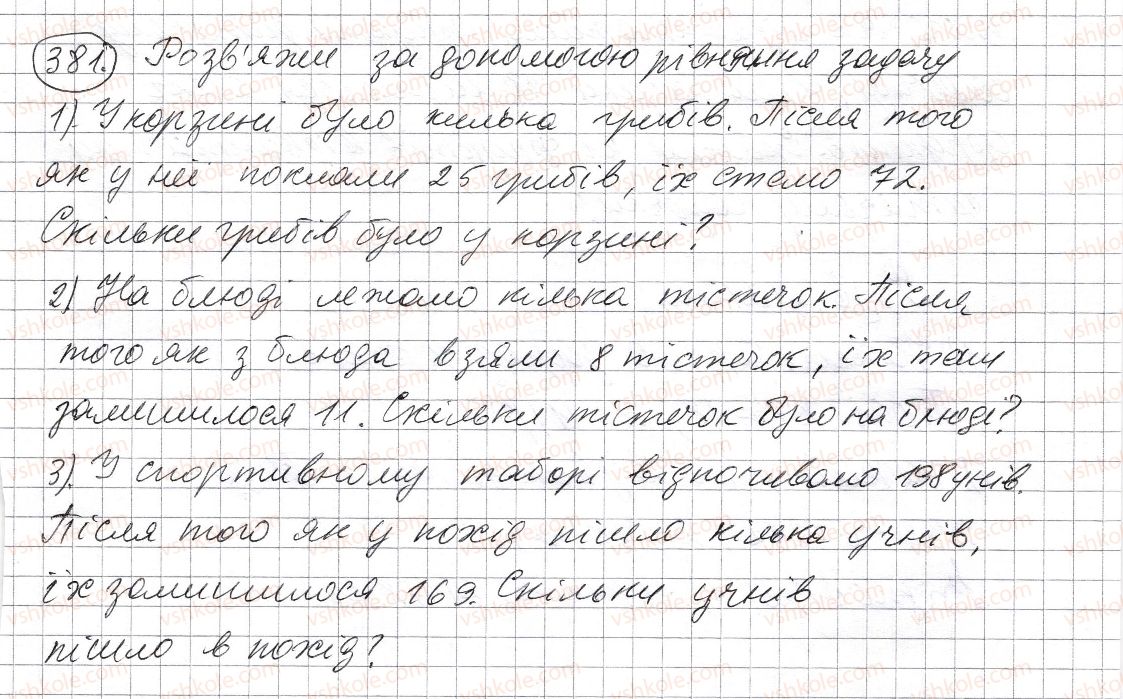 381. Розв'яжи за допомогою рівняння задачу
1). У корзині було килька грибів. Після того
як у неї поклали 25 грибів, їх стало 72.
Скільки грибів було у корзині?
2) На блюді лежало кілька тістечок. Після
того як з блюда взяли 8 тістечок, їх там
залишилося 11. Скільки тістечок було на блюді?
3). У спортивному таборі відпочивало 198 унів.
Після того як у похід пішло кілька учнів,
їх залишилося 169. Скільки учнів
пішло в похід?